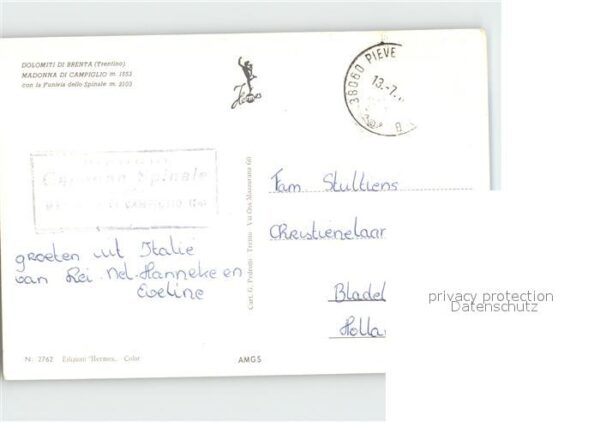 DOLOMITI DI BRENTA (Trentino)
MADONNA DI CAMPIGLIO m. 1553
con la Funivia dello Spinale m. 2100
38060 PIEVE
13.-7.
Capanna Spinale
Fam Stultiens
Christienelaan
Bladel
Holla
groeten uit Italie
van Rei. Nel-Hanneke en
Eveline
Cart. G. Pedrotti - Trento - Via Oss Mazzurana 60
N. 2762 Edizioni "Hermes" - Color
AMGS
privacy protection
Datenschutz